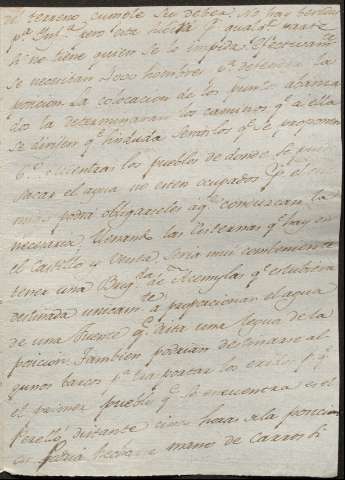 del terreno, cumple su deber. No hay bentaja
pª Infª, pero este hecha pr qualqr parte
si no tiene quien se lo impida. Efectivamte
se necesitan 4000 hombres pª defender la
posicion. La colocacion de los puntos abanza
dos la determinaran los caminos qe a ella
se dirijen qe sin duda seran los qe se proponen
6º Mientras los pueblos de donde se puede
sacar el agua no esten ocupados pr el ene
migo podrá obligarseles a qe conduzcan la
necesaria, llenando las cisternas qe hay en
el Castillo y Venta. Seria mui combeniente
tener una Brigda de Acemilas qe estubiera
destinada unicamte a proporcionar el agua
de una fuente qe dista una legua de la
posicion. Tambien podrian destinarse al
gunos barcos pª trasportar los
el primer pueblo qe se encuentra es el
Perelló distante cinco horas de la posicion
en podrá hechar mano de Carros si